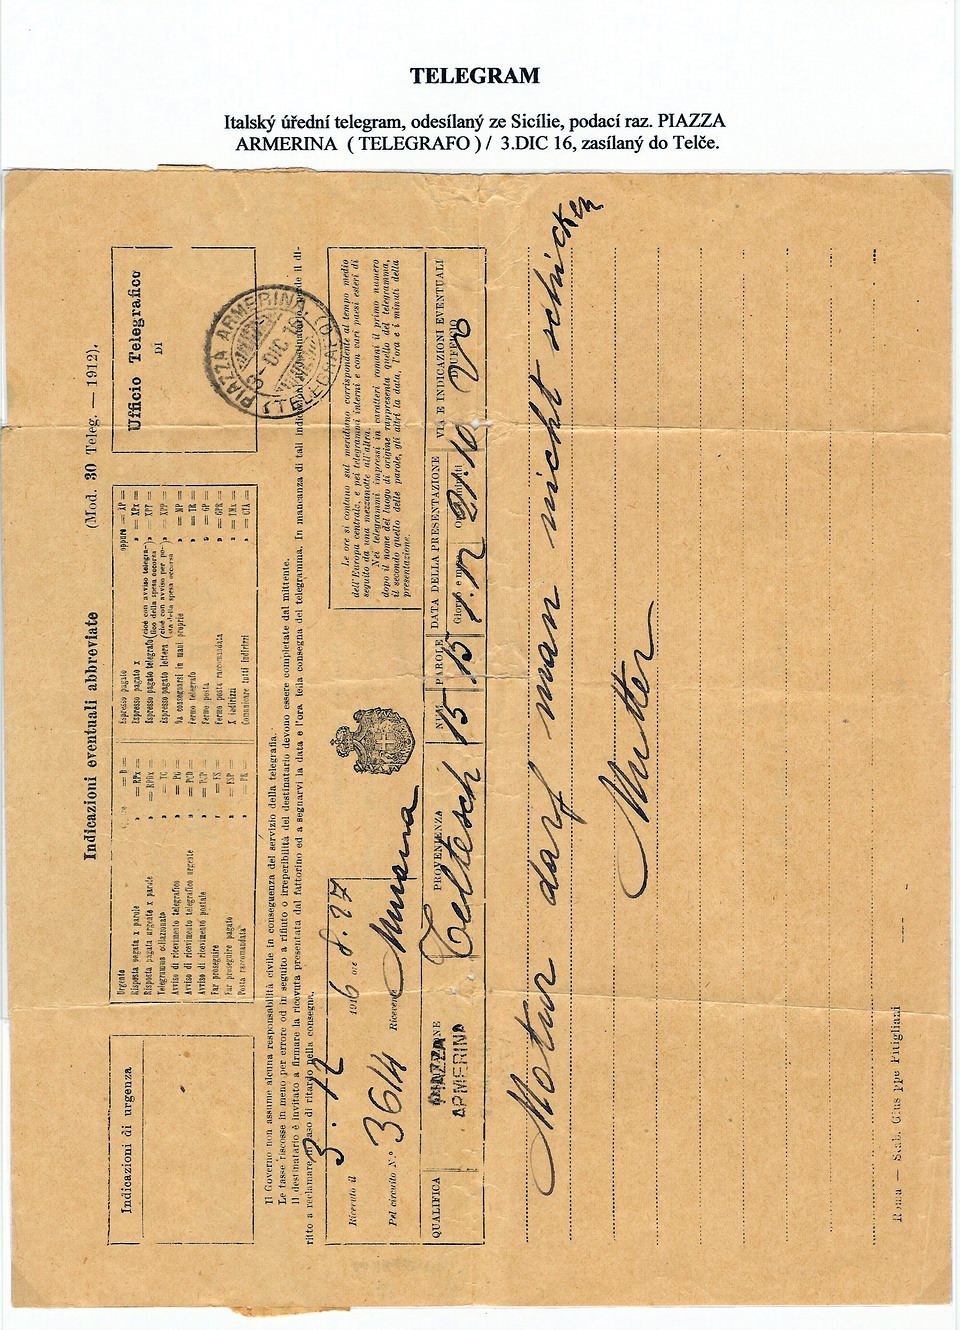 TELEGRAM
Italský úřední telegram, odesílaný ze Sicílie, podací raz. PIAZZA
ARMERINA ( TELEGRAFO ) / 3.DIC 16, zasílaný do Telče.
Indicazioni eventuali abbreviate (Mod. 30 Teleg. — 1912).
Indicazioni di urgenza
Urgente = D =
Risposta pagata x parole » = RPx =
Risposta pagata urgente x parole » = RPDx =
Telegramma collazionato » = TC =
Avviso di ricevimento telegrafico » = PC =
Avviso di ricevimento telegrafico urgente » = PCD =
Avviso di ricevimento postale » = PCP =
Far proseguire = FS =
Far proseguire pagato
Posta raccomandata » = PR =
Espresso pagato oppure = XP =
Espresso pagato x » = XPx =
Espresso pagato telegrafo (cioè con avviso telegra- » = XPT =
fico della spesa occorsa
Espresso pagato lettera (cioè con avviso per po- » = XPP =
sta della spesa occorsa
Da consegnarsi in mani proprie » = MP =
Fermo telegrafo » = TR =
Fermo posta » = GP =
Fermo posta raccomandata » = GPR =
X indirizzi » = TMx =
Comunicare tutti indirizzi » = CTA =
Ufficio Telegrafico
DI
PIAZZA ARMERINA
3-DIC 16
(TELEGRAFO)
Il Governo non assume alcuna responsabilità civile in conseguenza del servizio della telegrafia.
Le tasse riscosse in meno per errore od in seguito a rifiuto o irreperibilità del destinatario devono essere completate dal mittente.
Il destinatario è invitato a firmare la ricevuta presentata dal fattorino ed a segnarvi la data e l'ora della consegna del telegramma. In mancanza di tali indicazioni il destinatario perde il di-
ritto a reclamare in caso di ritardo nella consegna.
Ricevuto il 3. 12 1916 ore 8.27
Pel circuito N.º 3614 Ricevente
Le ore si contano sul meridiano corrispondente al tempo medio
dell'Europa centrale, e pei telegrammi interni e con vari paesi esteri di
seguito da una mezzanotte all'altra.
Nei telegrammi impressi in caratteri romani il primo numero
dopo il nome del luogo di origine rappresenta quello del telegramma,
il secondo quello delle parole, gli altri la data, l'ora e i minuti della
presentazione.
QUALIFICA DESTINAZIONE PROVENIENZA NUM. PAROLE DATA DELLA PRESENTAZIONE VIA E INDICAZIONI EVENTUALI
Giorno e mese Ore e minuti D'UFFICIO
PIAZZA
ARMERINA Teltesch 15 15 1.12 21.10
Motur darf man nicht schicken
Mutter
Roma — Stab. Giuseppe Pitigliani